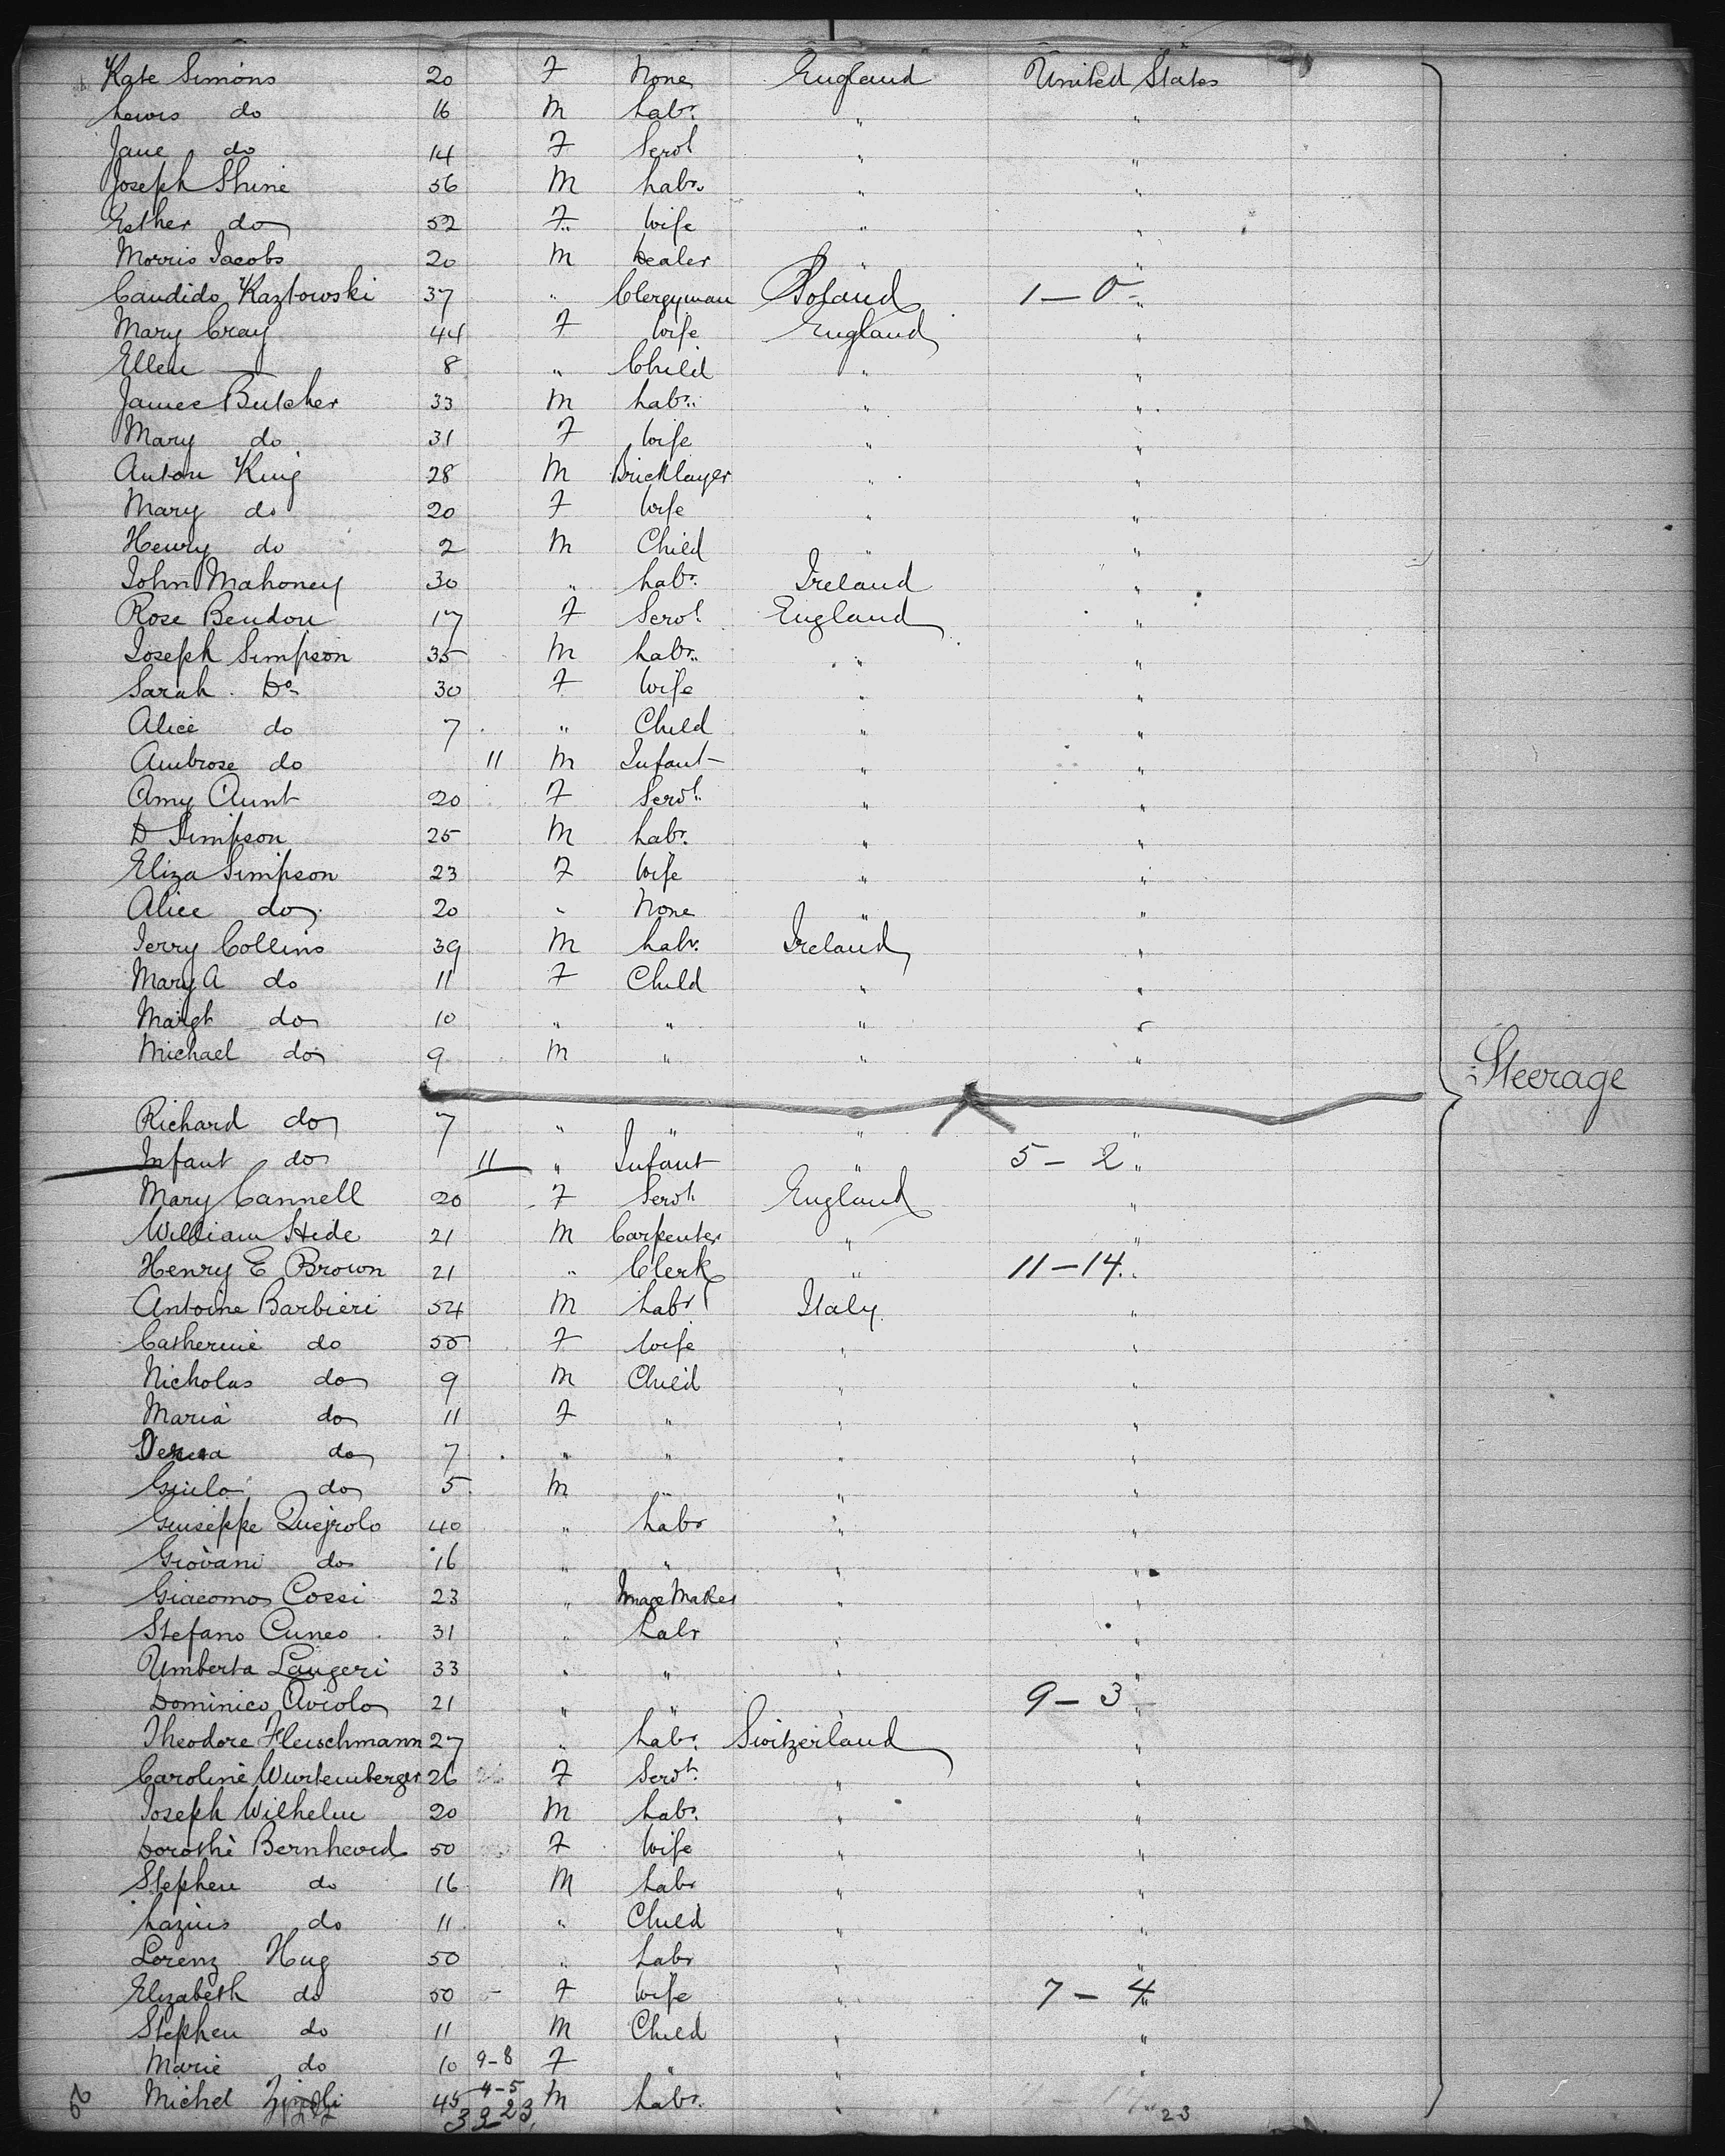 Kate Simons 20 F None England United States
Lewis do 16 M Labr. " "
Jane do 14 F Servt " "
Joseph Shine 56 M Labr. " "
Esther do 52 F Wife " "
Morris Jacobs 20 M Dealer " "
Candido Kazlowski 37 " Clergyman Poland 1 — 0 "
Mary Cray 44 F Wife England "
Ellen — 8 " Child " "
James Butcher 33 M Labr. " "
Mary do 31 F Wife " "
Anton King 28 M Bricklayer " "
Mary do 20 F Wife " "
Henry do 2 M Child " "
John Mahoney 30 " Labr. Ireland "
Rose Bendon 17 F Servt. England "
Joseph Simpson 35 M Labr. " "
Sarah Do 30 F Wife " "
Alice do 7 " Child " "
Ambrose do 11 M Infant " "
Amy Aunt 20 F Servt. " "
D Simpson 25 M Labr. " "
Eliza Simpson 23 F Wife " "
Alice do 20 " None " "
Jerry Collins 39 M Labr. Ireland "
Mary A do 11 F Child " "
Margt do 10 " " " "
Michael do 9 M " " "
Steerage
Richard do 7 " " " "
Infant do 11 " Infant " 5 — 2 "
Mary Cannell 20 F Servt England "
William Hide 21 M Carpenter " "
Henry E Brown 21 " Clerk " 11 — 14 "
Antoine Barbieri 54 M Labr Italy "
Catherine do 50 F Wife " "
Nicholas do 9 M Child " "
Maria do 11 F " " "
do 7 " " " "
Giulo do 5 M " " "
Guiseppe Queirolo 40 " Labr " "
Giovani do 16 " " " "
Giacomo Cossi 23 " Image Maker " "
Stefano Cuneo 31 " Labr " "
Umberta Laugeri 33 " " " "
Dominico Aviolo 21 " " " 9 — 3 "
Theodore Fleischmann 27 " Labr. Switzerland "
Caroline Wurtemberger 26 F Servt. " "
Joseph Wilhelm 20 M Labr. " "
Dorothe Bernheord 50 F Wife " "
Stephen do 16 M Labr " "
Lazius do 11 " Child " "
Lorenz Hug 50 " Labr " "
Elizabeth do 50 F Wife " 7 — 4 "
Stephen do 11 M Child " "
Marie do 10 9-8 F " " "
Michel 45 4-5 M Labr. " "
32 23 23